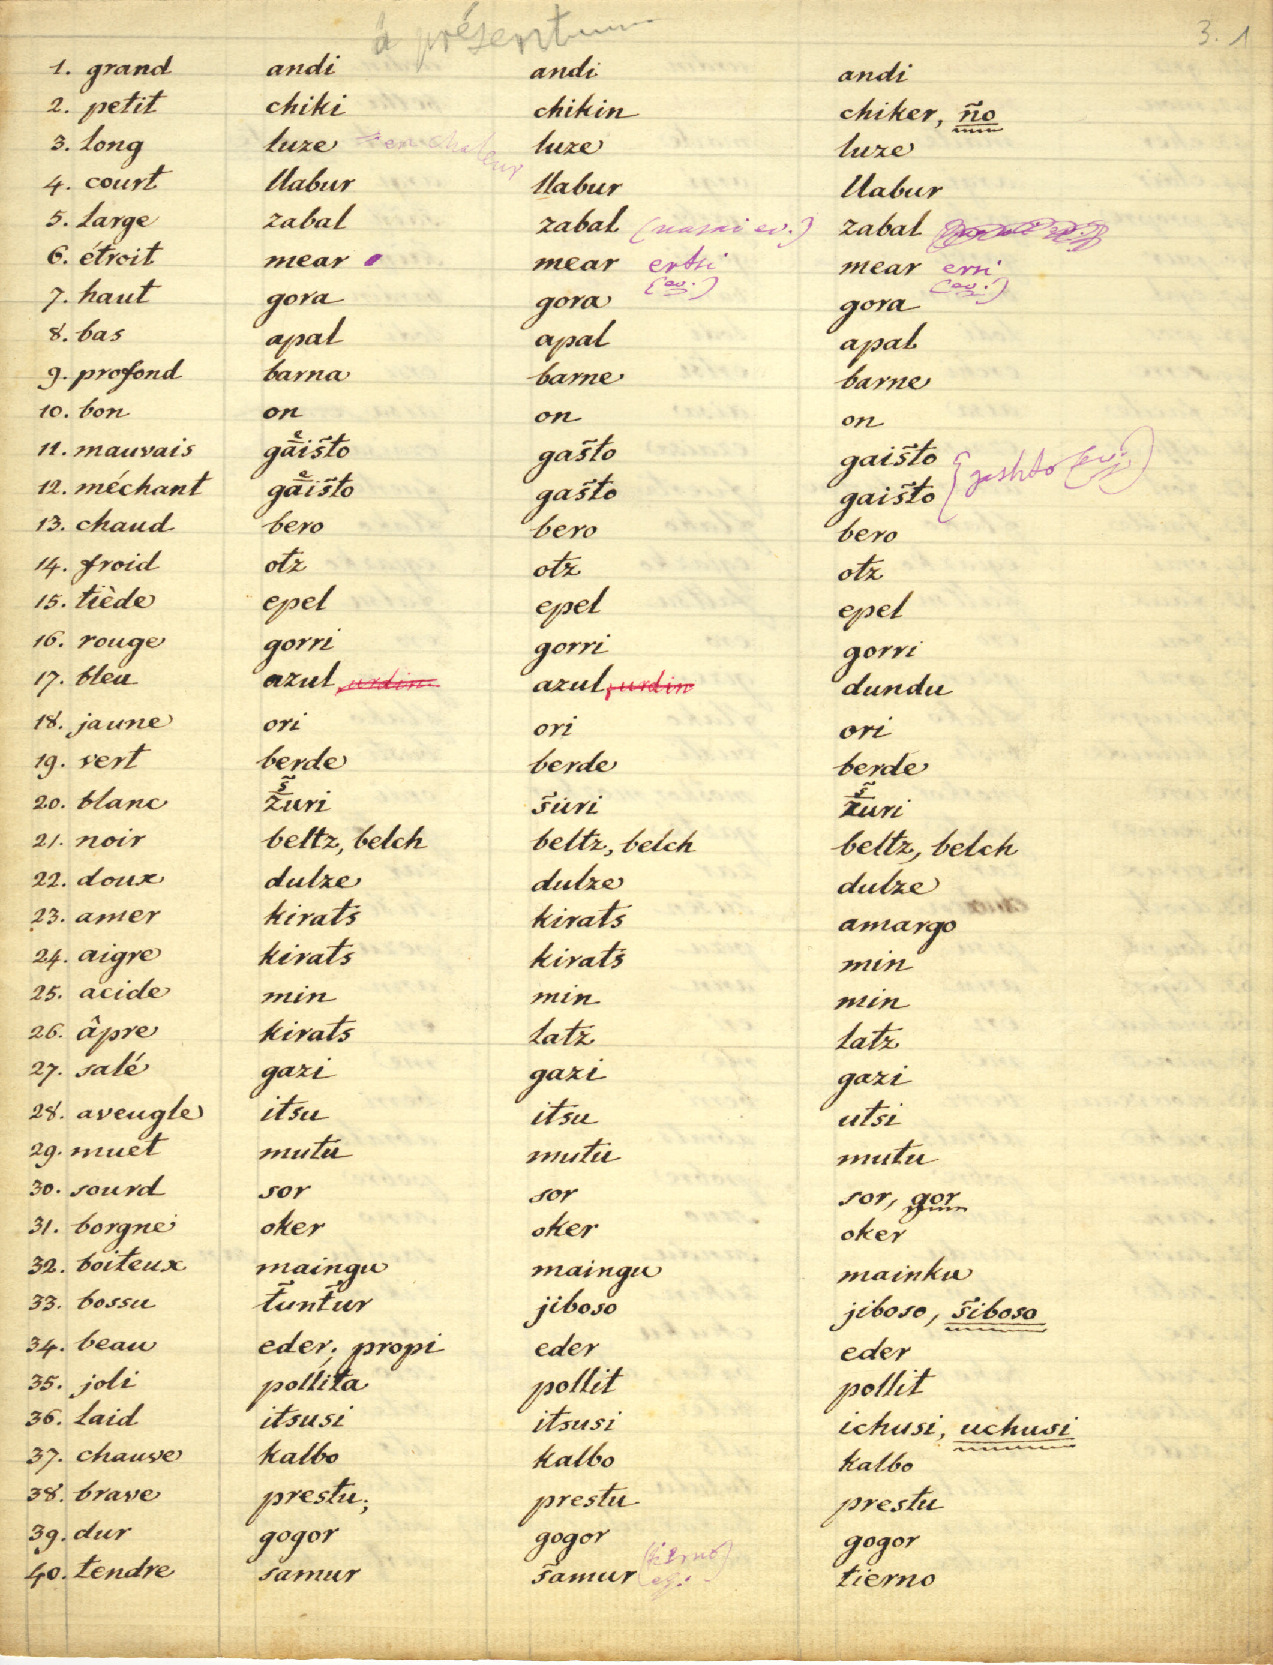 à présent
3. 1
1. grand andi andi andi
2. petit chiki chikin chiker, ño
3. long luze luze luze
4. court llabur llabur llabur
5. large zabal zabal zabal
6. étroit mear mear ertsi (ev.) mear ersi (ev.)
7. haut gora gora gora
8. bas apal apal apal
9. profond barna barne barne
10. bon on on on
11. mauvais gais̃to gas̃to gais̃to
12. méchant gais̃to gas̃to gais̃to { gashto (ev.)
13. chaud bero bero bero
14. froid otz otz otz
15. tiède epel epel epel
16. rouge gorri gorri gorri
17. bleu azul, urdin azul, urdin dundu
18. jaune ori ori ori
19. vert berde berde berde
20. blanc z̃uri s̃uri z̃uri
21. noir beltz, belch beltz, belch beltz, belch
22. doux dulze dulze dulze
23. amer kirats kirats amargo
24. aigre kirats kirats min
25. acide min min min
26. âpre kirats latz latz
27. salé gazi gazi gazi
28. aveugle itsu itsu utsi
29. muet mutu mutu mutu
30. sourd sor sor sor, gor
31. borgne oker oker oker
32. boiteux maingu maingu mainku
33. bossu t̃unt̃ur jiboso jiboso, s̃iboso
34. beau eder, propi eder eder
35. joli pollita pollit pollit
36. laid itsusi itsusi ichusi, uchusi
37. chauve kalbo kalbo kalbo
38. brave prestu; prestu prestu
39. dur gogor gogor gogor
40. tendre samur s̃amur tierno